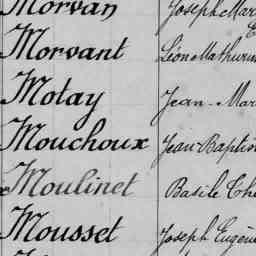 Morvan Joseph Mar
Morvant Léon Mathurin
Motay Jean-Mar
Mouchoux Jean Baptis
Moulinet Basile Thé
Mousset Joseph Eugène